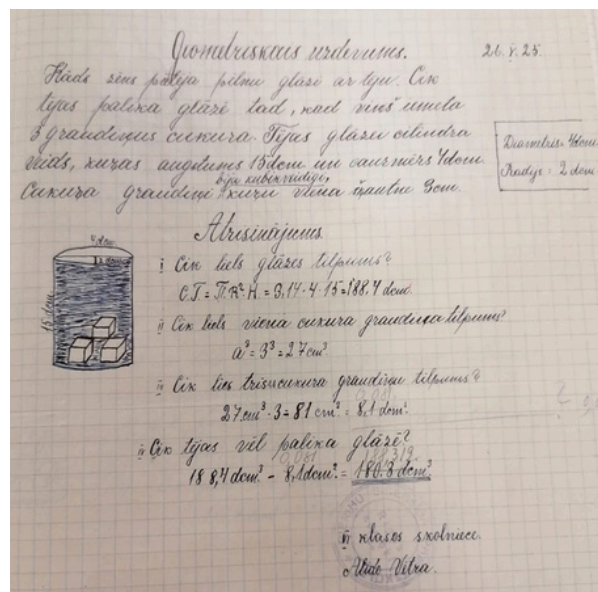 Ģeometriskais uzdevums. 26. V. 25.
Kāds zēns pielēja pilnu glāzi ar tēju. Cik
tējas palika glāzē tad, kad viņš iemeta
3 graudiņus cukura. Tējas glāzei cilindra
veids, kuras augstums 15 dcm un caurmērs 4 dcm.
bija kubikveidīgi,
Cukura graudiņi kuru viena šķautne 3 cm.
Diametrs = 4 dcm
Radijs = 2 dcm
Atrisinājums.
4 dcm
15 dcm
I Cik liels glāzes tilpums?
C.T. = π.R².H. = 3,14·4·15 = 188,4 dcm.
II Cik liels viena cukura graudiņa tilpums?
a³ = 3³ = 27 cm³.
III Cik liels trīs cukura graudiņu tilpums?
0,081
27 cm³·3 = 81 cm³ = 8,1 dcm³.
IV Cik tējas vēl palika glāzē?
0,081 188,319
188,4 dcm³ - 8,1 dcm³ = 180.3 dcm³
VI klases skolniece.
Vitra.